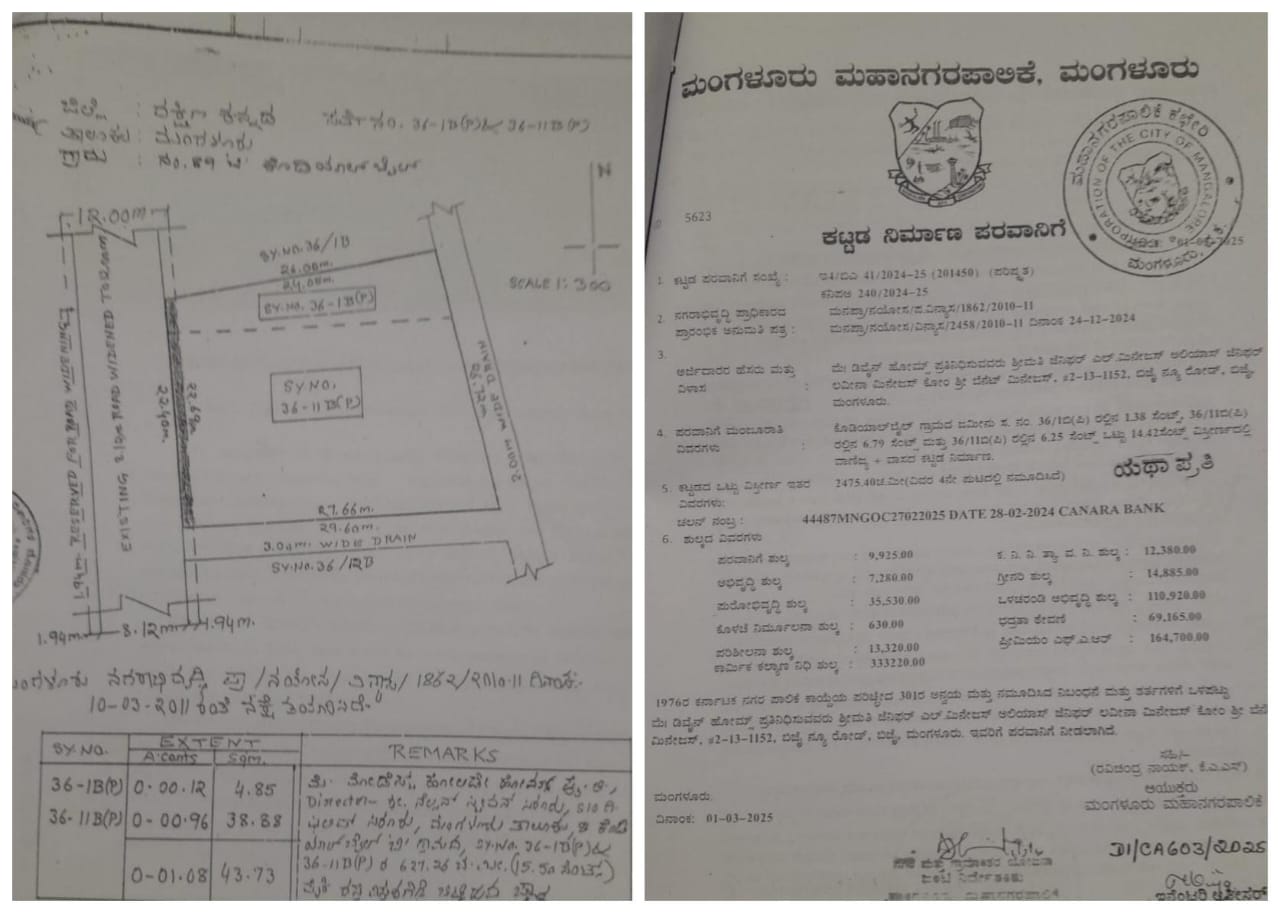 ಜಿಲ್ಲೆ : ದಕ್ಷಿಣ ಕನ್ನಡ ಸರ್ವೆ ನಂ. 36-1B(P) & 36-11B(P)
ತಾಲೂಕು : ಮಂಗಳೂರು
ಗ್ರಾಮ : ನಂ. 89
N
12.00m
SY.NO.36/1B
26.00m.
24.08m.
SY.NO. 36-1B(P)
SCALE 1:300
EXISTING 8.12m WIDENED ROAD
22.40m.
22.69m
SY.NO.
36-11B(P)
2.00m WIDE DRAIN
27.66m.
29.60m.
3.00m. WIDE DRAIN
SY.NO.36/12B
1.94m 8.12m 1.94m.
ಮಂಗಳೂರು ನಗರಾಭಿವೃದ್ಧಿ ಪ್ರಾ/ನಯೋಸ/ವಿನ್ಯಾಸ/1862/2010-11 ದಿನಾಂಕ:
10-03-2011 ರಂತೆ ನಕ್ಷೆ ತಯಾರಿಸಿದೆ.
SY.NO. EXTENT REMARKS
A-cents Sqm.
36-1B(P) 0-00.12 4.85
36-11B(P) 0-00.96 38.88
0-01.08 43.73
Director
SY.NO. 36-1B(P) &
36-11B(P) ರ 627.26 ಚ.ಮೀ. (15.50 ಸೆಂಟ್ಸ್)
ಮಂಗಳೂರು ಮಹಾನಗರಪಾಲಿಕೆ, ಮಂಗಳೂರು
ಮಹಾನಗರಪಾಲಿಕೆ ಕಛೇರಿ
CORPORATION OF THE CITY OF MANGALORE
ಮಂಗಳೂರು, ದ. ಕ.
5623
ಕಟ್ಟಡ ನಿರ್ಮಾಣ ಪರವಾನಿಗೆ
1. ಕಟ್ಟಡ ಪರವಾನಿಗೆ ಸಂಖ್ಯೆ : ಇ4/ಬಿಎ 41/2024-25 (201450) (ಪರಿಷ್ಕೃತ)
ಕನಿಪಅ 240/2024-25
2. ನಗರಾಭಿವೃದ್ಧಿ ಪ್ರಾಧಿಕಾರದ ಮನಪ್ರಾ/ನಯೋಸ/ಪ.ವಿನ್ಯಾಸ/1862/2010-11
ಪ್ರಾರಂಭಿಕ ಅನುಮತಿ ಪತ್ರ : ಮನಪ್ರಾ/ನಯೋಸ/ವಿನ್ಯಾಸ/2458/2010-11 ದಿನಾಂಕ 24-12-2024
3. ಅರ್ಜಿದಾರರ ಹೆಸರು ಮತ್ತು ವಿಳಾಸ : ಮೆ| ಡಿವೈನ್ ಹೋಮ್ಸ್ ಪ್ರತಿನಿಧಿಸುವವರು ಶ್ರೀಮತಿ ಜೆನಿಫರ್ ಎಲ್.ಮಿನೇಜಸ್ ಅಲಿಯಾಸ್ ಜೆನಿಫರ್
ಲವೀನಾ ಮಿನೇಜಸ್ ಕೋಂ ಶ್ರೀ ಬೆನೆಟ್ ಮಿನೇಜಸ್, #2-13-1152, ಬಿಜೈ ನ್ಯೂ ರೋಡ್, ಬಿಜೈ,
ಮಂಗಳೂರು.
4. ಪರವಾನಿಗೆ ಮಂಜೂರಾತಿ ವಿವರಗಳು : ಕೊಡಿಯಾಲ್‌ಬೈಲ್ ಗ್ರಾಮದ ಜಮೀನು ಸ. ನಂ. 36/1ಬಿ(ಪಿ) ರಲ್ಲಿನ 1.38 ಸೆಂಟ್ಸ್, 36/11ಬಿ(ಪಿ)
ರಲ್ಲಿನ 6.79 ಸೆಂಟ್ಸ್ ಮತ್ತು 36/11ಬಿ(ಪಿ) ರಲ್ಲಿನ 6.25 ಸೆಂಟ್ಸ್ ಒಟ್ಟು 14.42ಸೆಂಟ್ಸ್ ವಿಸ್ತೀರ್ಣದಲ್ಲಿ
ವಾಣಿಜ್ಯ + ವಾಸದ ಕಟ್ಟಡ ನಿರ್ಮಾಣ.
ಯಥಾ ಪ್ರತಿ
5. ಕಟ್ಟಡದ ಒಟ್ಟು ವಿಸ್ತೀರ್ಣ ಇತರ ವಿವರಗಳು: 2475.40ಚ.ಮೀ(ವಿವರ 4ನೇ ಪುಟದಲ್ಲಿ ನಮೂದಿಸಿದೆ)
ಚಲನ್ ನಂಬ್ರ : 44487MNGOC27022025 DATE 28-02-2024 CANARA BANK
6. ಶುಲ್ಕದ ವಿವರಗಳು
ಪರವಾನಿಗೆ ಶುಲ್ಕ : 9,925.00 ಕ. ನಿ. ನಿ. ತ್ಯಾ. ವ. ನಿ. ಶುಲ್ಕ : 12,380.00
ಅಭಿವೃದ್ಧಿ ಶುಲ್ಕ : 7,280.00 ಗ್ರೀನರಿ ಶುಲ್ಕ : 14,885.00
ಪುರೋಭಿವೃದ್ಧಿ ಶುಲ್ಕ : 35,530.00 ಒಳಚರಂಡಿ ಅಭಿವೃದ್ಧಿ ಶುಲ್ಕ : 110,920.00
ಕೊಳಚೆ ನಿರ್ಮೂಲನಾ ಶುಲ್ಕ : 630.00 ಭದ್ರತಾ ಠೇವಣಿ : 69,165.00
ಪರಿಶೀಲನಾ ಶುಲ್ಕ : 13,320.00 ಪ್ರೀಮಿಯಂ ಎಫ್.ಎ.ಆರ್ : 164,700.00
ಕಾರ್ಮಿಕ ಕಲ್ಯಾಣ ನಿಧಿ ಶುಲ್ಕ : 333220.00
1976ರ ಕರ್ನಾಟಕ ನಗರ ಪಾಲಿಕೆ ಕಾಯ್ದೆಯ ಪರಿಚ್ಛೇದ 301ರ ಅನ್ವಯ ಮತ್ತು ನಮೂದಿಸಿದ ನಿಬಂಧನೆ ಮತ್ತು ಶರ್ತಗಳಿಗೆ ಒಳಪಟ್ಟು
ಮೆ| ಡಿವೈನ್ ಹೋಮ್ಸ್ ಪ್ರತಿನಿಧಿಸುವವರು ಶ್ರೀಮತಿ ಜೆನಿಫರ್ ಎಲ್.ಮಿನೇಜಸ್ ಅಲಿಯಾಸ್ ಜೆನಿಫರ್ ಲವೀನಾ ಮಿನೇಜಸ್ ಕೋಂ ಶ್ರೀ
ಮಿನೇಜಸ್, #2-13-1152, ಬಿಜೈ ನ್ಯೂ ರೋಡ್, ಬಿಜೈ, ಮಂಗಳೂರು. ಇವರಿಗೆ ಪರವಾನಿಗೆ ನೀಡಲಾಗಿದೆ.
ಸಹಿ/-
(ರವಿಚಂದ್ರ ನಾಯಕ್, ಕೆ.ಎ.ಎಸ್)
ಆಯುಕ್ತರು
ಮಂಗಳೂರು ಮಹಾನಗರಪಾಲಿಕೆ
ಮಂಗಳೂರು.
ದಿನಾಂಕ: 01-03-2025
ನಗರ ಮತ್ತು ಗ್ರಾಮಾಂತರ ಯೋಜನಾ
ಜಂಟಿ ನಿರ್ದೇಶಕರು
DI/CA603/2025